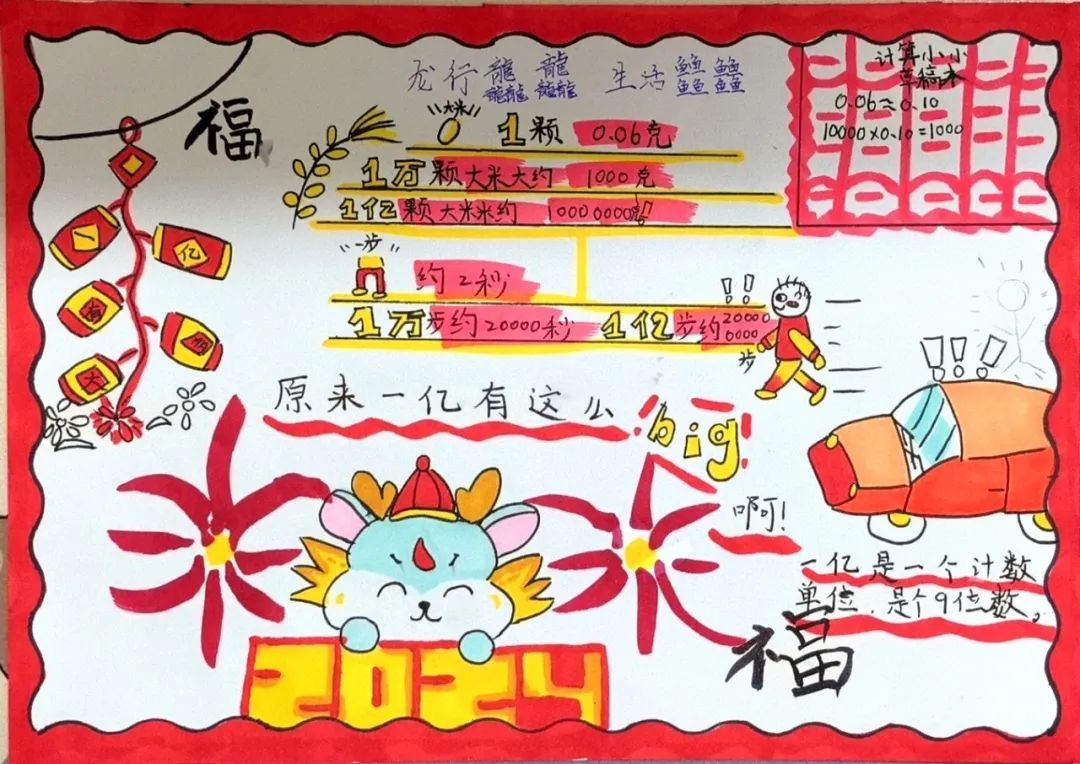 龙行龘龘 生活鱻鱻
福
计算小小
草稿本
0.06≈0.10
10000×0.10=1000
"大米"
1颗 0.06克
1万颗大米大约 1000克
1亿颗大米米约 10000000克!
一
亿
有
大
"一步"
约2秒
!!
1万步约20000秒 1亿步约20000
0000
步
原来一亿有这么
big!
!!!
啊!
一亿是一个计数
单位,是个9位数。
福
2024